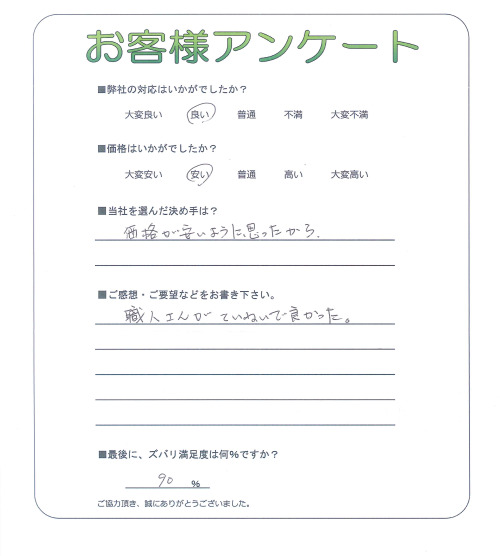 お客様アンケート
■弊社の対応はいかがでしたか？
大変良い 良い 普通 不満 大変不満
■価格はいかがでしたか？
大変安い 安い 普通 高い 大変高い
■当社を選んだ決め手は？
価格が安いように思ったから.
■ご感想・ご要望などをお書き下さい。
職人さんがていねいで良かった。
■最後に、ズバリ満足度は何％ですか？
90 ％
ご協力頂き、誠にありがとうございました。